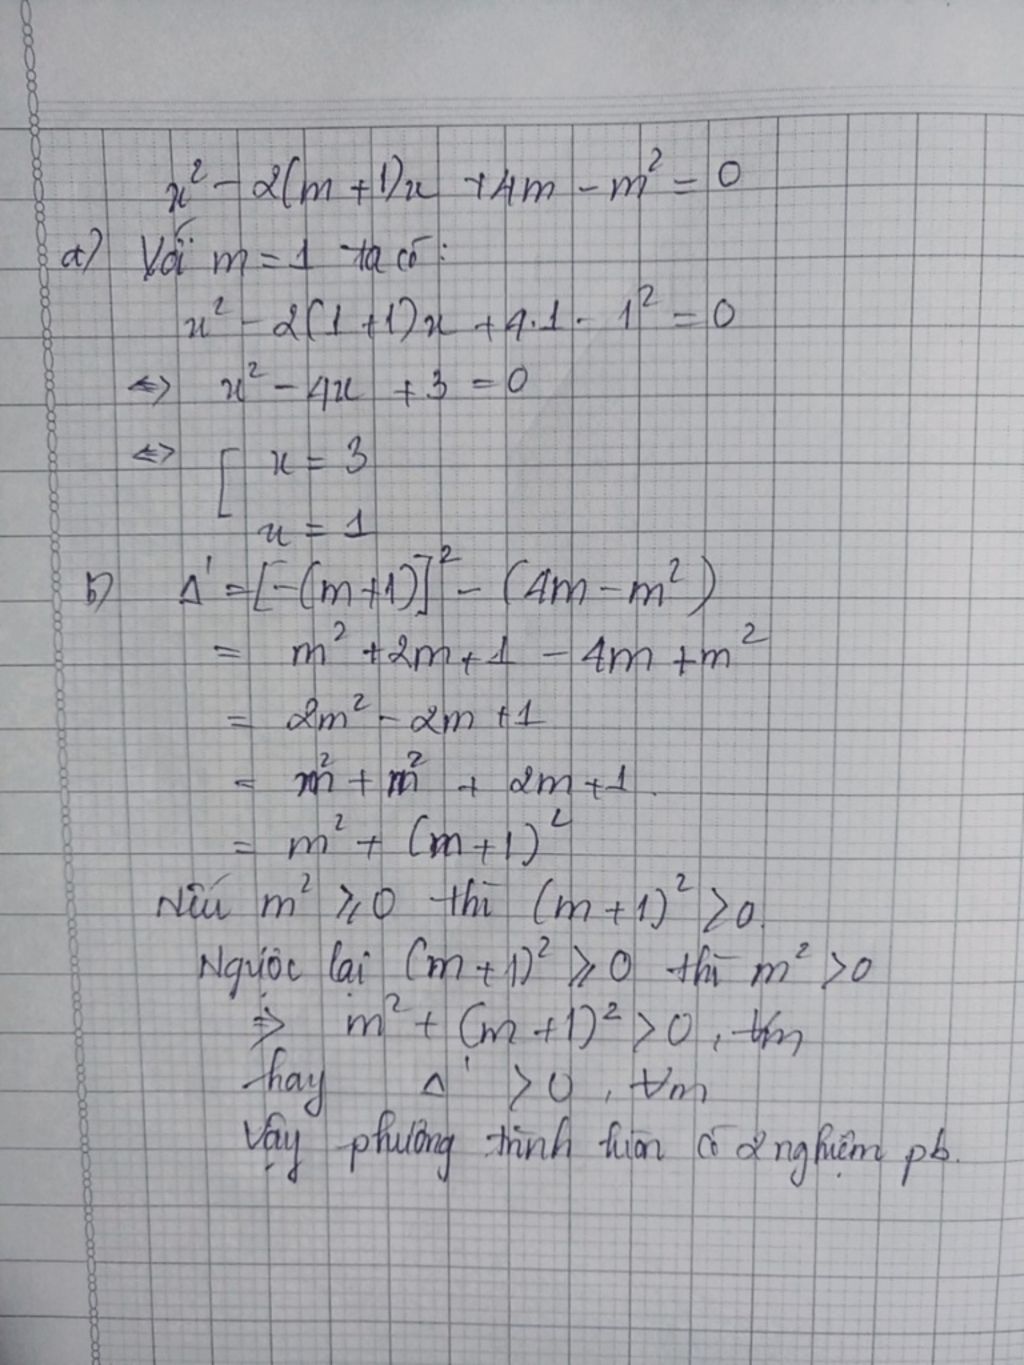 x² - 2(m+1)x + 4m - m² = 0
a) Với m = 1 ta có:
x² - 2(1+1)x + 4.1 - 1² = 0
<=> x² - 4x + 3 = 0
<=> [ x = 3
x = 1
b) Δ' = [-(m+1)]² - (4m - m²)
= m² + 2m + 1 - 4m + m²
= 2m² - 2m + 1
= m² + m² + 2m + 1.
= m² + (m+1)²
Nếu m² ⩾ 0 thì (m+1)² > 0.
Ngược lại (m+1)² ⩾ 0 thì m² > 0
=> m² + (m+1)² > 0, ∀m
hay Δ' > 0, ∀m
Vậy phương trình luôn có 2 nghiệm pb.